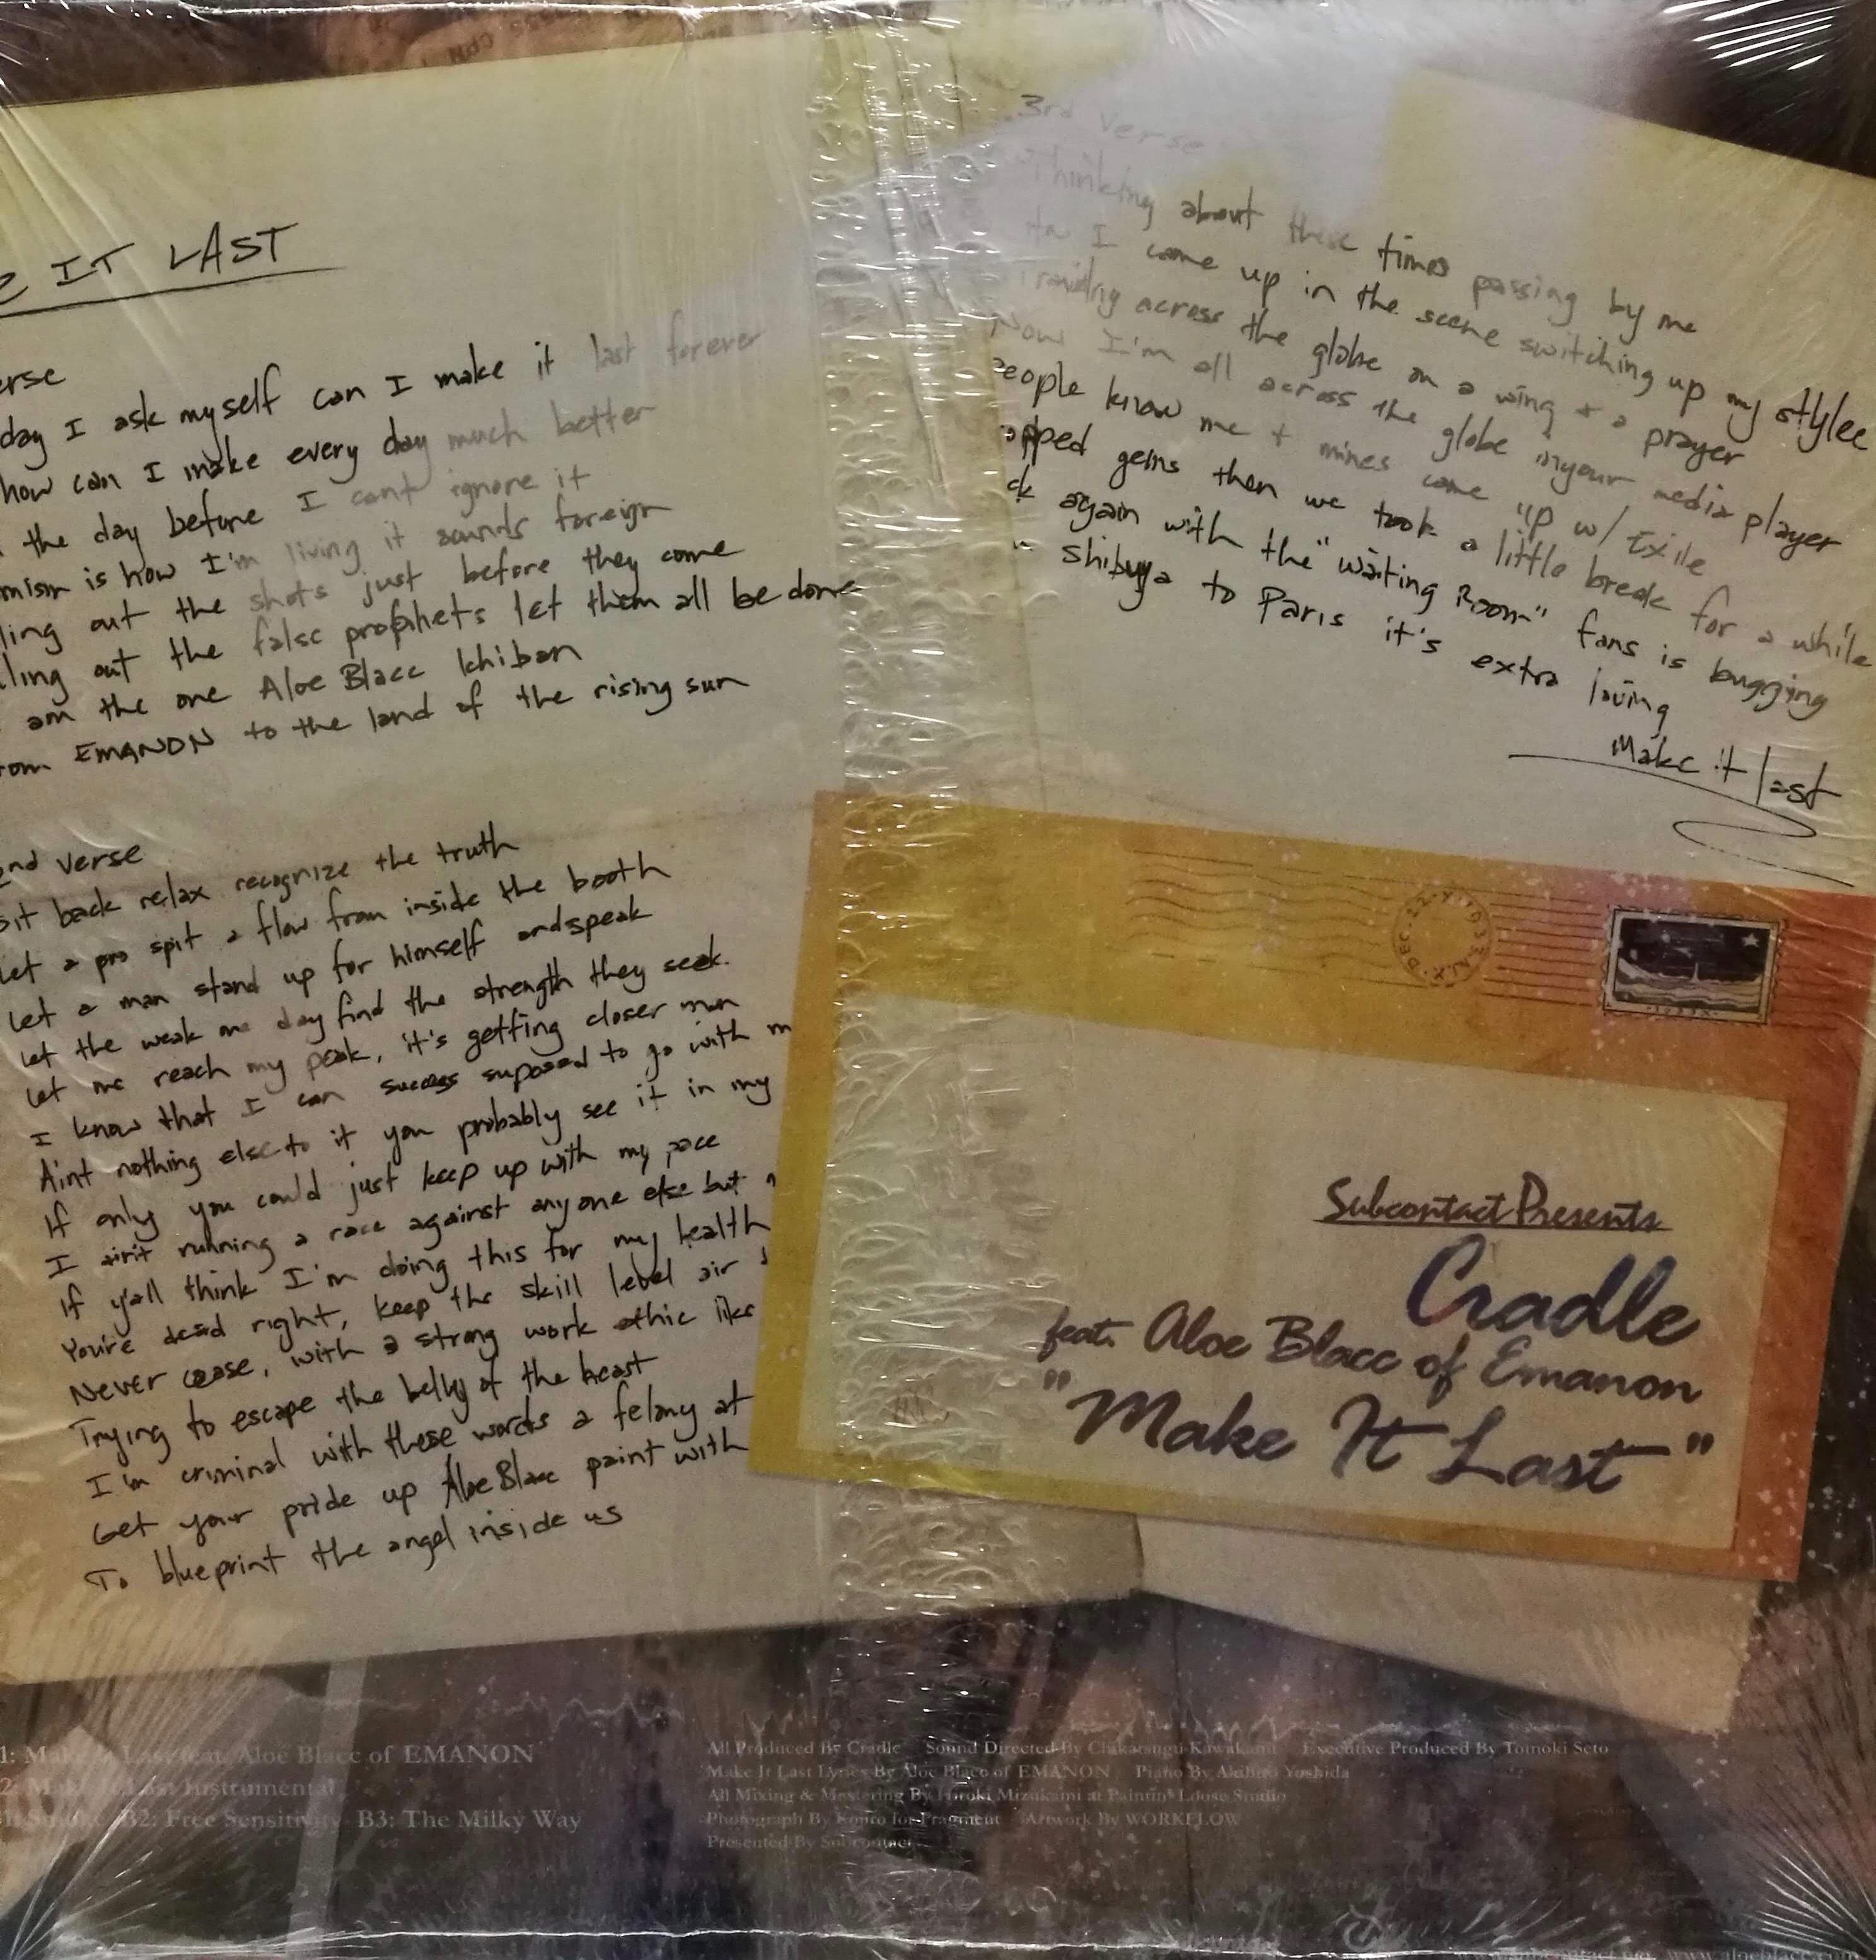 IT LAST
day I ask myself can I make it last forever
how can I make every day much better
the day before I cant ignore it
is how I'm living it sounds foreign
out the shots just before they come
out the false prophets let them all be done
am the one Aloe Blacc Ichiban
EMANON to the land of the rising sun
verse
back relax recognize the truth
Let a pro spit a flow from inside the booth
Let a man stand up for himself and speak
Let the weak one day find the strength they seek.
Let me reach my peak, it's getting closer man
I know that I can success suposed to go with
Aint nothing else to it you probably see it in my
If only you could just keep up with my pace
I ain't running a race against anyone else but
If y'all think I'm doing this for my health
You're dead right, keep the skill level air
Never cease, with a strong work ethic like
Trying to escape the belly of the beast
I'm criminal with these words a felony at
Get your pride up Aloe Blacc paint with
To blueprint the angel inside us
3rd Verse
Thinking about these times passing by me
I come up in the scene switching up my stylee
across the globe on a wing + a prayer
Now I'm all across the globe in your media player
people know me + mines come up w/ Exile
gems then we took a little break for a while
again with the "Waiting Room" fans is bugging
Shibuya to Paris it's extra loving
Make it last
DEC. 22
Subcontact Presents
Cradle
feat. Aloe Blacc of Emanon
"Make It Last"
1: Make It Last feat. Aloe Blacc of EMANON
2: Make It Last Instrumental
B2: Free Sensitivity B3: The Milky Way
All Produced By Cradle Sound Directed By Executive Produced By Tomoki Seto
Make It Last Lyrics By Aloe Blacc of EMANON Piano By Yoshida
All Mixing & Mastering By Hiroki Mizukami at Paintin' Louse Studio
Photograph By for Fragment Artwork By WORKFLOW
Presented By Subcontact